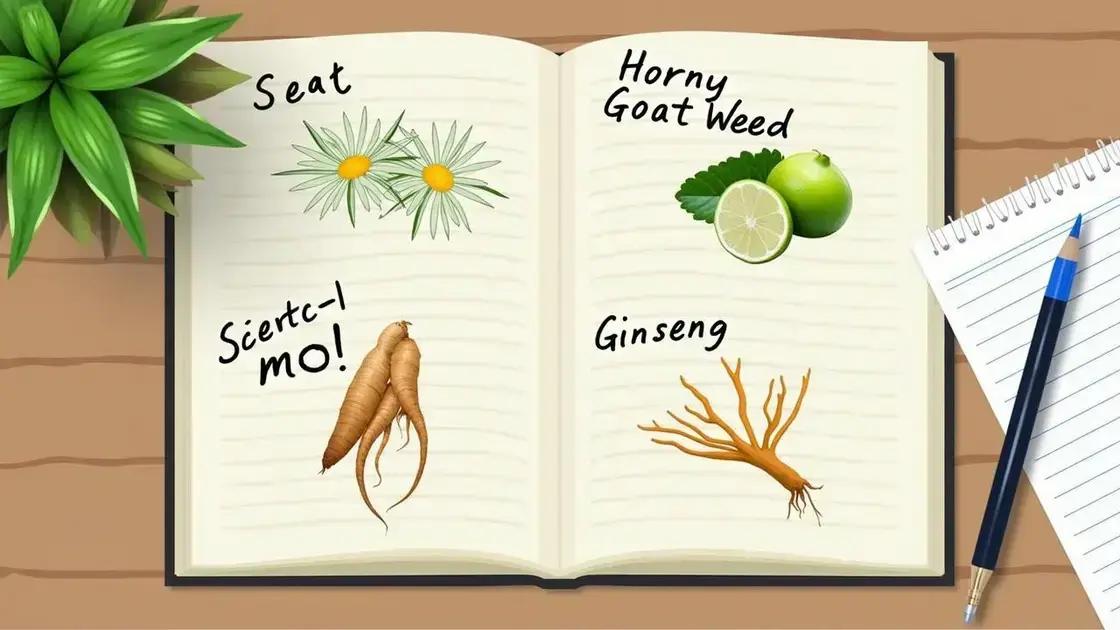 Seat
Scertc-l
mo!
Horny
Goat Weed
Ginseng